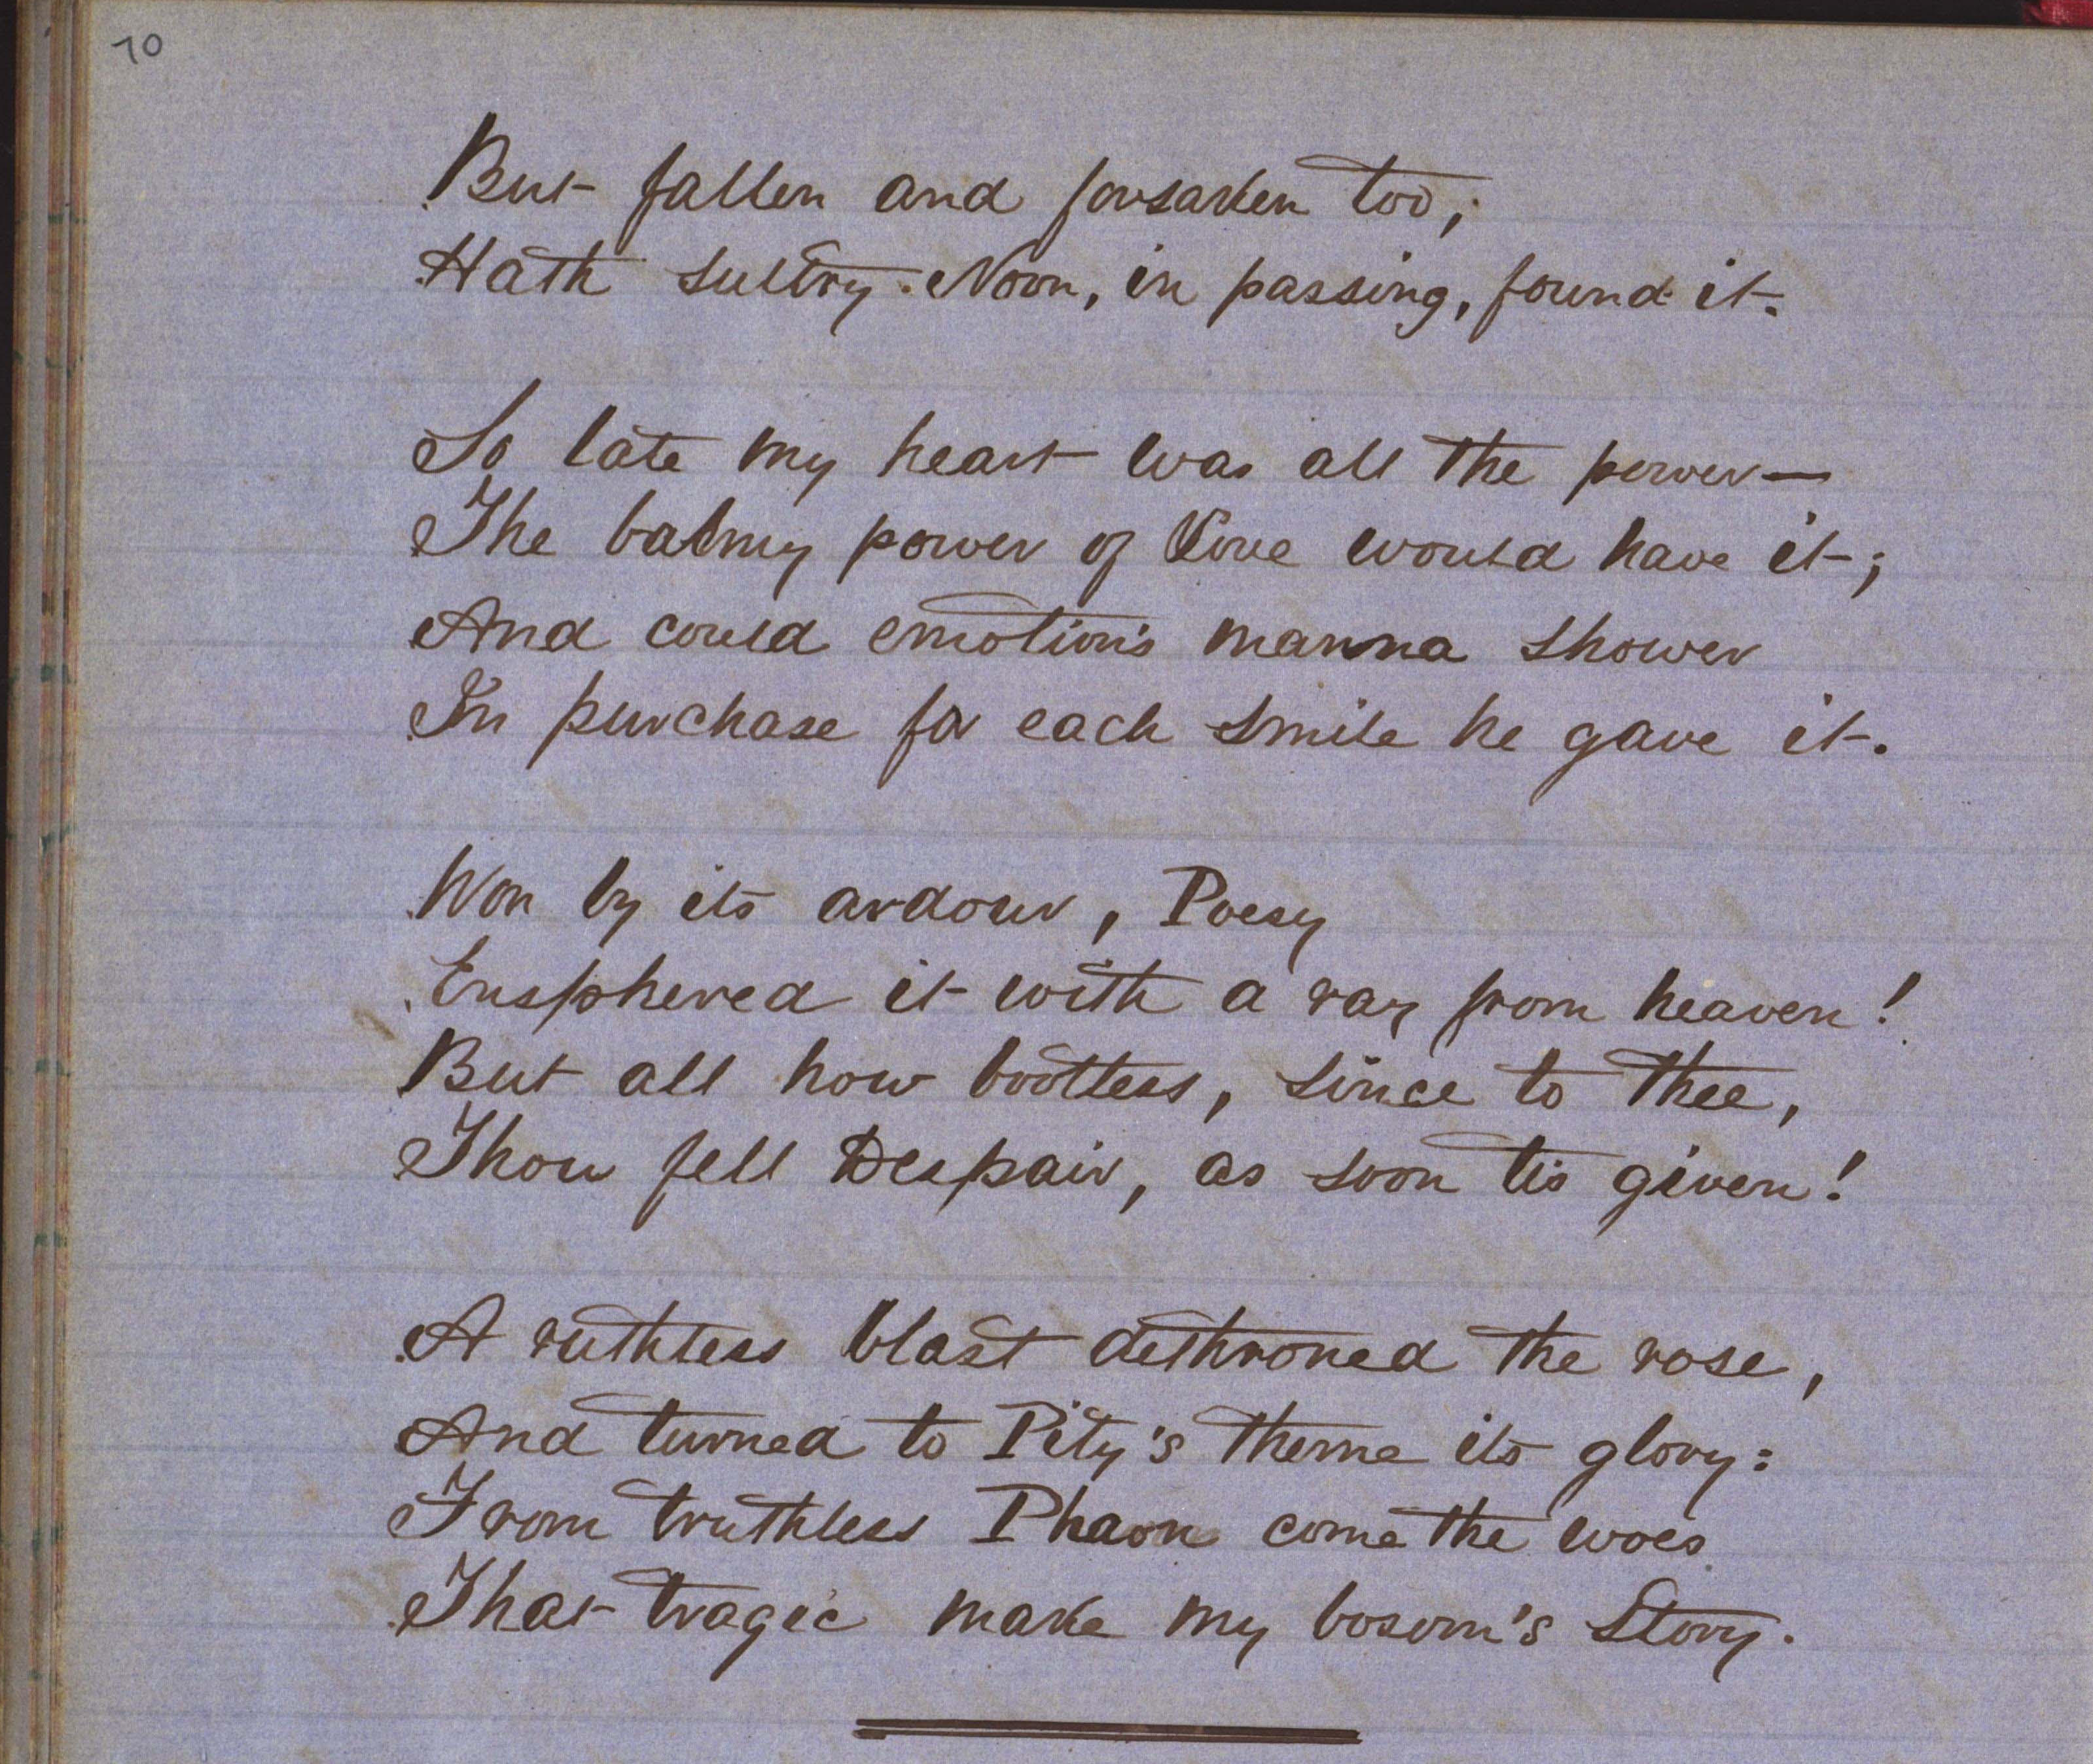 10
But fallen and forsaken too,
Hath sultry Noon, in passing, found it.
So late my heart was all the power—
The balmy power of Love would have it;
And could emotion's manna shower
In purchase for each smile he gave it.
Won by its ardour, Poesy
Ensphered it with a ray from heaven!
But all how bootless, since to thee,
Thou fell Despair, as soon tis given!
A ruthless blast dethroned the rose,
And turned to Pity's theme its glory:
From truthless Phaon come the woes
That tragic make my bosom's story.